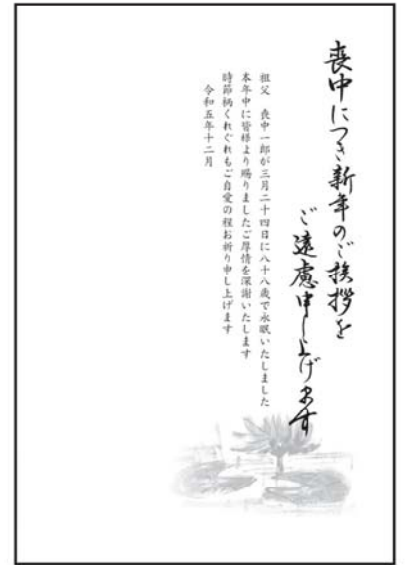 喪中につき新年のご挨拶を
ご遠慮申し上げます
祖父　喪中一郎が三月二十四日に八十八歳で永眠いたしました
本年中に皆様より賜りましたご厚情を深謝いたします
時節柄くれぐれもご自愛の程お祈り申し上げます
令和五年十二月